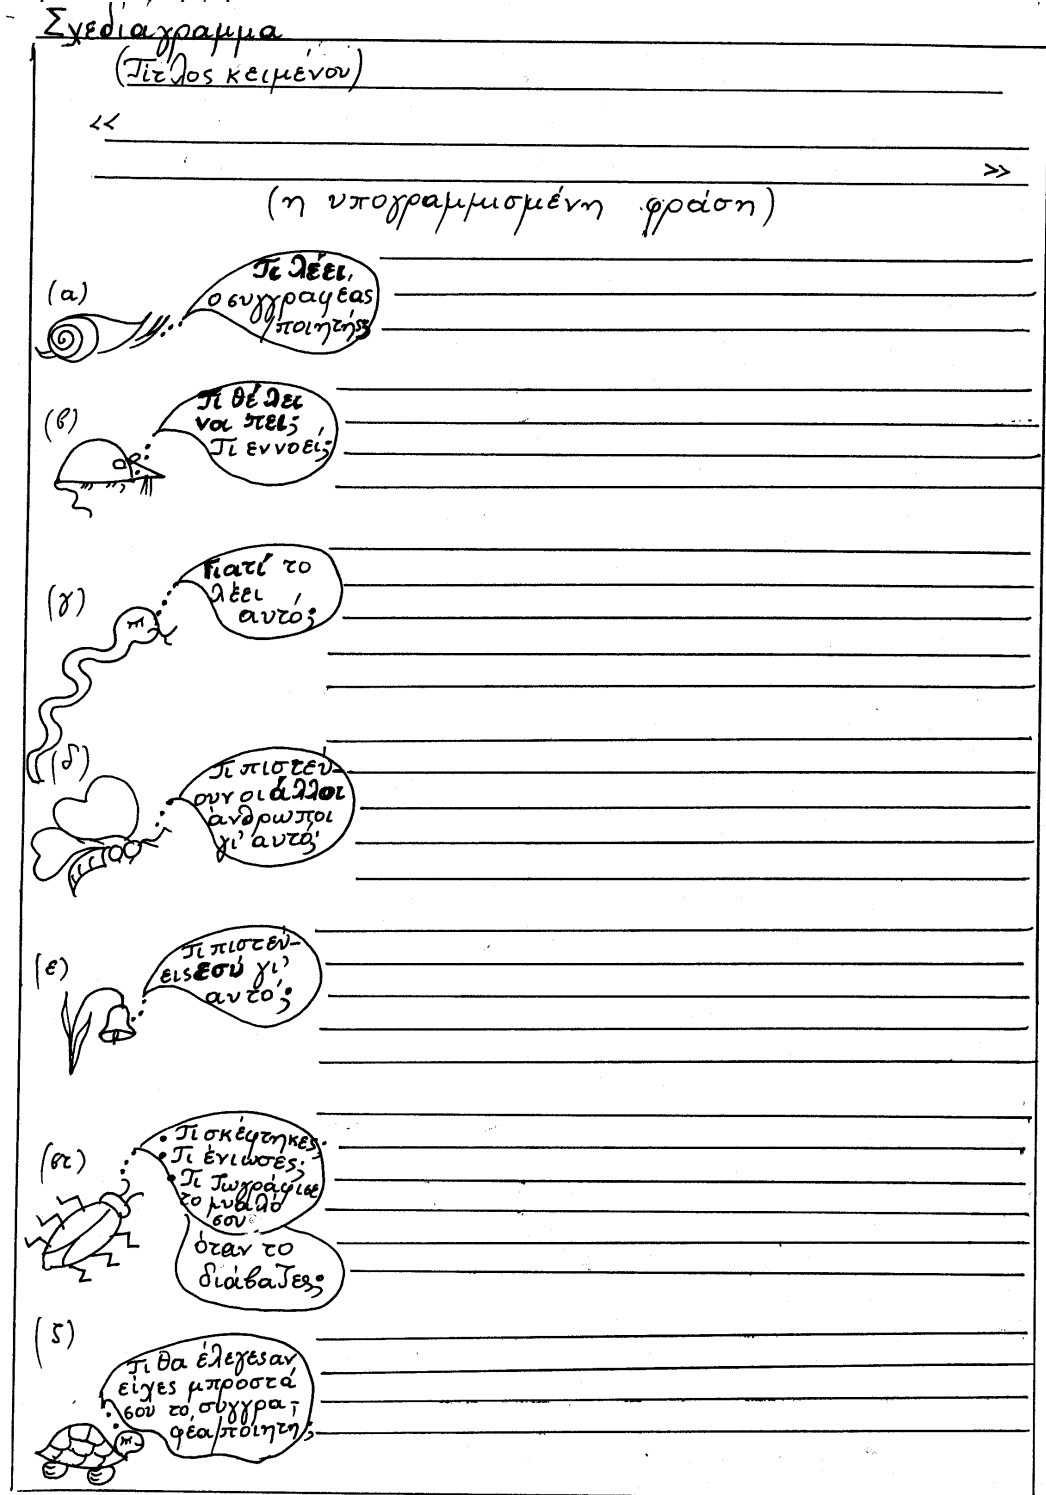 Σχεδιάγραμμα
(Τίτλος κειμένου)
<<
>>
(η υπογραμμισμένη φράση)
(α)
Τι λέει,
ο συγγραφέας
/ποιητής;
(β)
Τι θέλει
να πει;
Τι εννοεί;
(γ)
Γιατί το
λέει
αυτό;
(δ)
Τι πιστεύ-
ουν οι άλλοι
άνθρωποι
γι' αυτό;
(ε)
Τι πιστεύ-
εις εσύ γι'
αυτό;
(στ)
• Τι σκέφτηκες;
• Τι ένιωσες;
• Τι ζωγράφισε
το μυαλό
σου
όταν το
διάβαζες;
(ζ)
Τι θα έλεγες αν
είχες μπροστά
σου το συγγρα-
φέα/ποιητή;